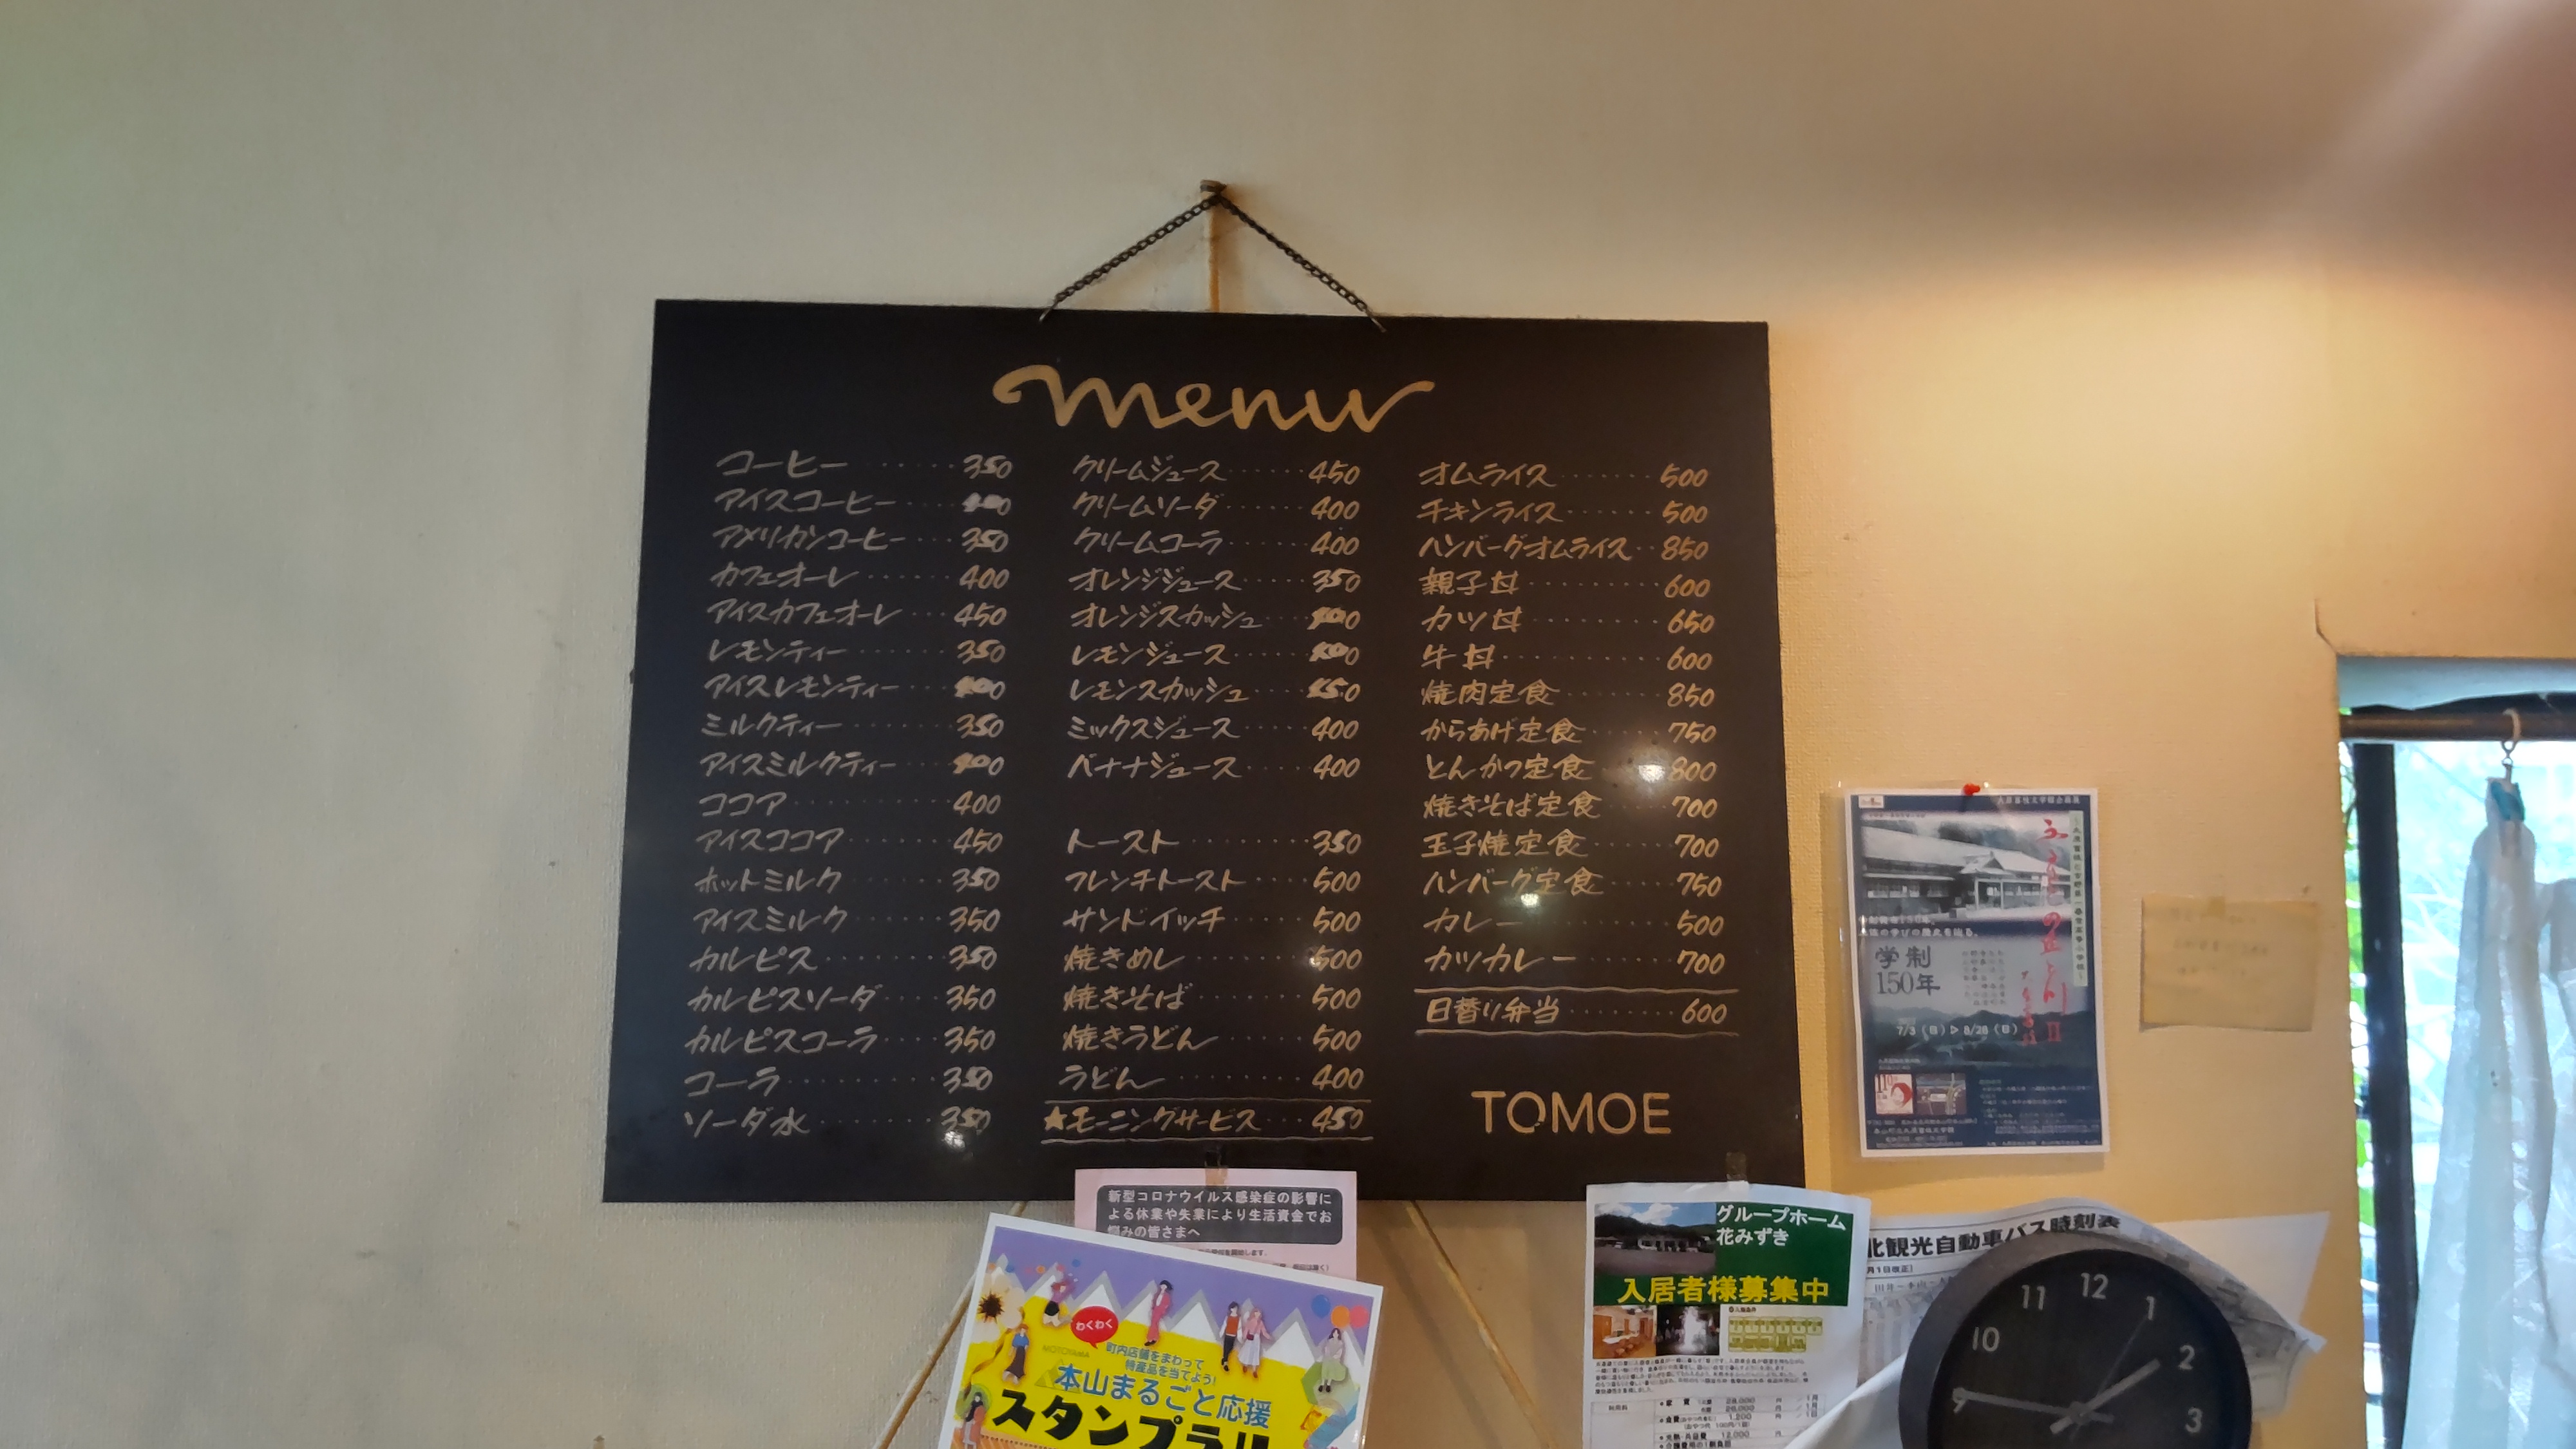 menu
コーヒー 350
アイスコーヒー
アメリカンコーヒー 350
カフェオーレ 400
アイスカフェオーレ 450
レモンティー 350
アイスレモンティー
ミルクティー 350
アイスミルクティー
ココア 400
アイスココア 450
ホットミルク 350
アイスミルク 350
カルピス 350
カルピスソーダ 350
カルピスコーラ 350
コーラ 350
ソーダ水 350
クリームジュース 450
クリームソーダ 400
クリームコーラ 400
オレンジジュース 350
オレンジスカッシュ
レモンジュース
レモンスカッシュ
ミックスジュース 400
バナナジュース 400
トースト 350
フレンチトースト 500
サンドイッチ 500
焼きめし 500
焼きそば 500
焼きうどん 500
うどん 400
★モーニングサービス 450
オムライス 500
チキンライス 500
ハンバーグオムライス 850
親子丼 600
カツ丼 650
牛丼 600
焼肉定食 850
からあげ定食 750
とんかつ定食 800
焼きそば定食 700
玉子焼定食 700
ハンバーグ定食 750
カレー 500
カツカレー 700
日替り弁当 600
TOMOE
学制
150年
7/3(日)▷8/28(日)
新型コロナウイルス感染症の影響に
よる休業や失業により生活資金でお
悩みの皆さまへ
わくわく
MOTOYAMA
町内店舗をまわって
特産品を当てよう!
本山まるごと応援
スタンプラリ
グループホーム
花みずき
入居者様募集中
北観光自動車バス時刻表
月1日改正
12
11
1
10
2
9
3